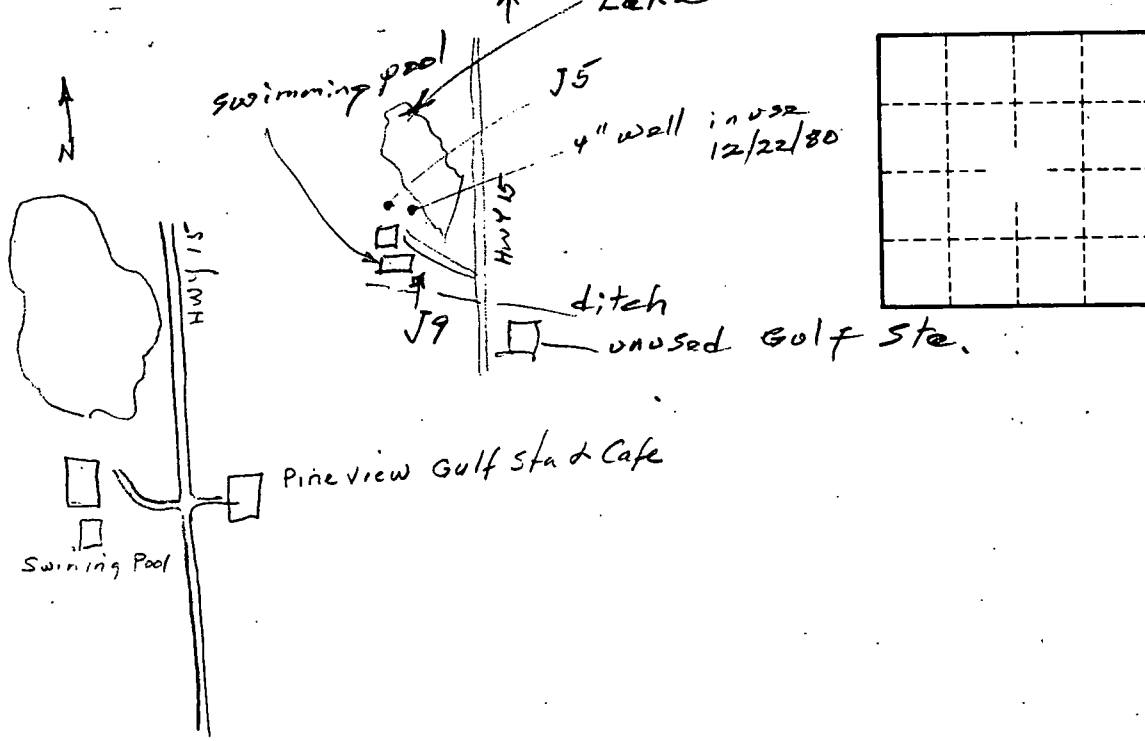 Lake
swimming pool
J5
4" well in use
12/22/80
N
HWY 15
HWY 15
J9
ditch
unused Gulf Sta.
Pineview Gulf Sta & Cafe
Swining Pool